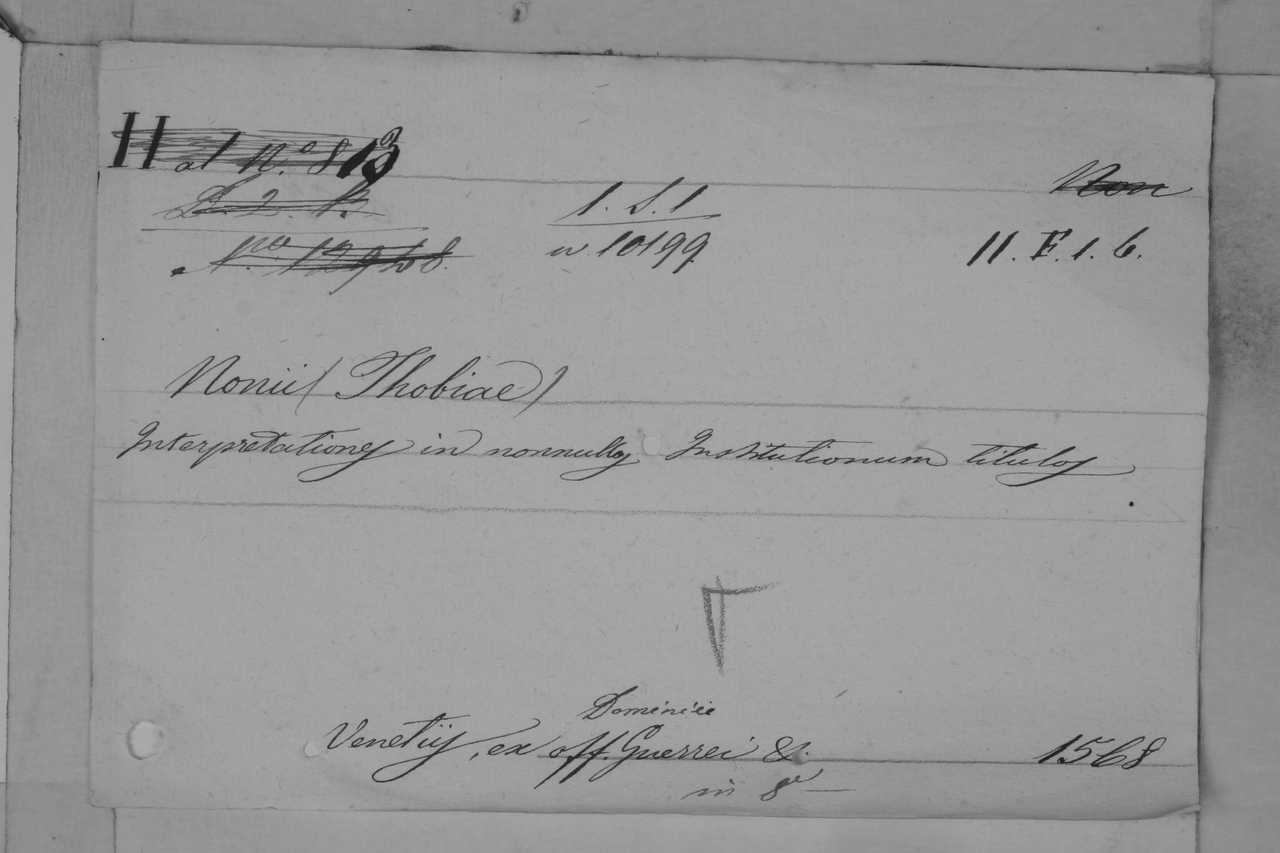 H al N.º 813
L. 2. K.
1. S. 1
Non
Nº. 12948.
n 10199
11. F. 1. 6.
Nonii (Thobiae)
Interpretationes in nonnullos Institutionum titulos
Dominici
Venetiis, ex off. Guerrei &.
1568
in 8º